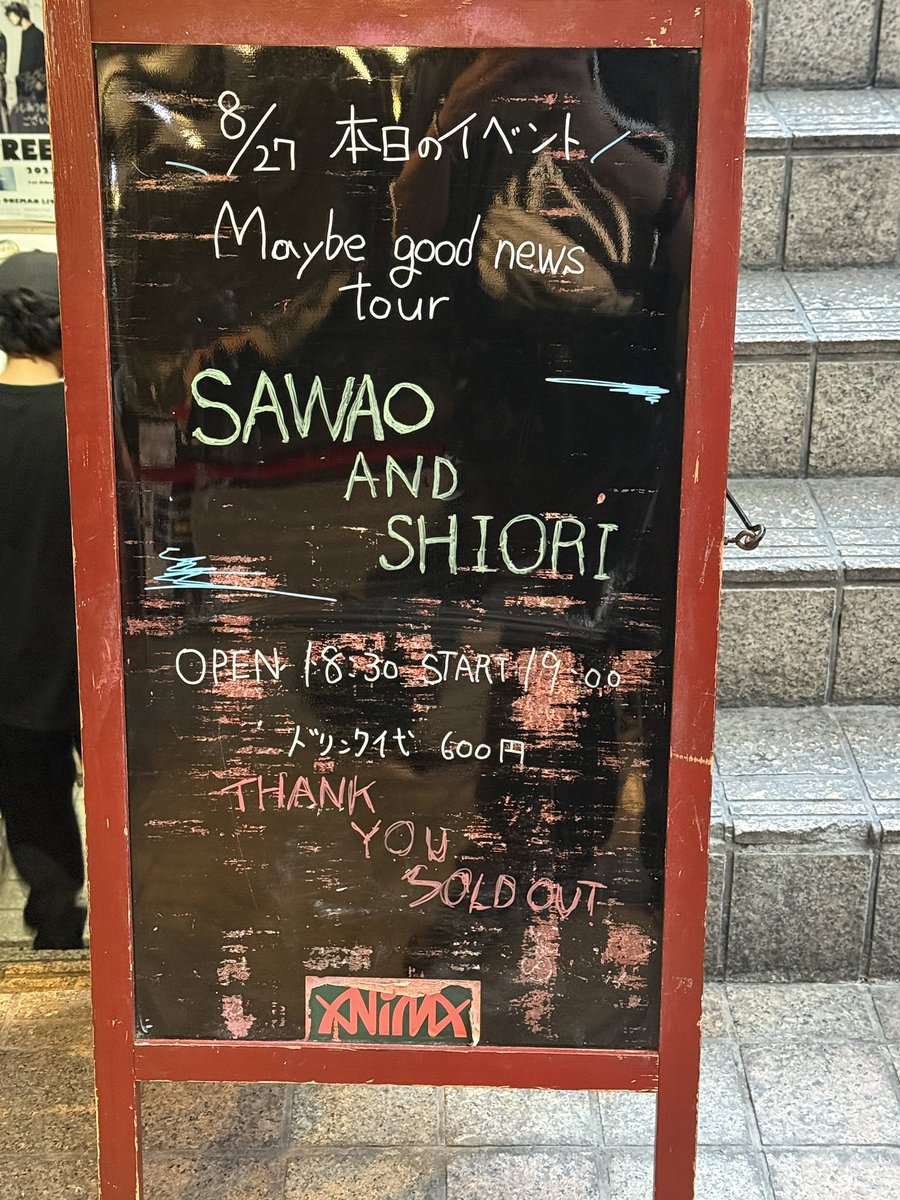 8/27 本日のイベント
Maybe good news
tour
SAWAO
AND
SHIORI
OPEN 18:30 START 19:00
ドリンク代 600円
THANK
YOU
SOLD OUT
ANIMA
REE
202
ONEMAN LI